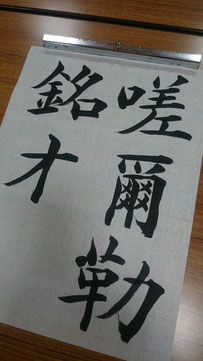 嗟爾勒
銘才